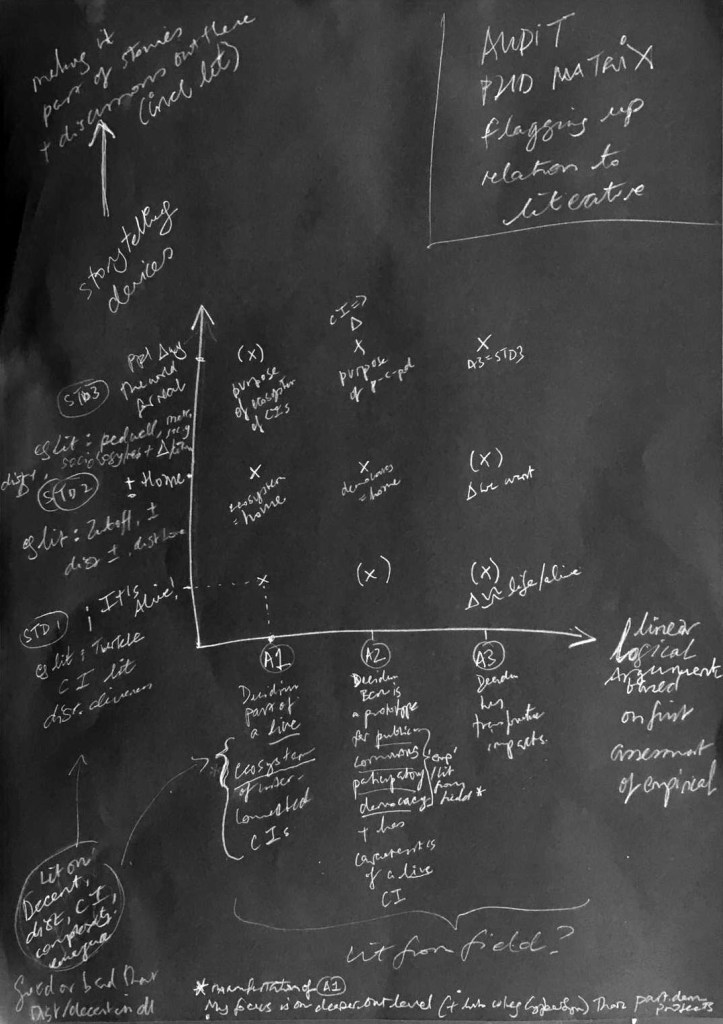 making it
part of stories
+ discussions out there
(incl lit)
AUDIT
PHD MATRIX
flagging up
relation to
literature
storytelling
devices
STD3
ppl Δing
the world
for real
eg lit: pedwell,
STD2
+ Home
eg lit: Zuboff, ±
STD1
¡ It's
Alive!
eg lit: Turkle
CI lit
(x)
purpose
of ecosystem
of CIs
CI =>
Δ
x
purpose
of p-c-pd
x
A3 = STD3
x
ecosystem
= home
x
democracy
= home
(x)
Δ we want
x
(x)
(x)
life/alive
A1
A2
A3
Decidim
part of
a live
ecosystem
of inter-
connected
CIs
Decidim
BCN is
a prototype
for public
commons
participatory
democracy
+ has
characteristics
of a live
CI
'emp'
lit
from
field *
Decidim
has
transformative
impacts.
linear
logical
argument
based
on first
assessment
of empirical
Lit on
Decent,
dist, CI,
complexity,
Good or bad that
Dist/decent in dd
Lit from field?
* manifestation of A1
My focus is on deeper level (+ than part dem
projects